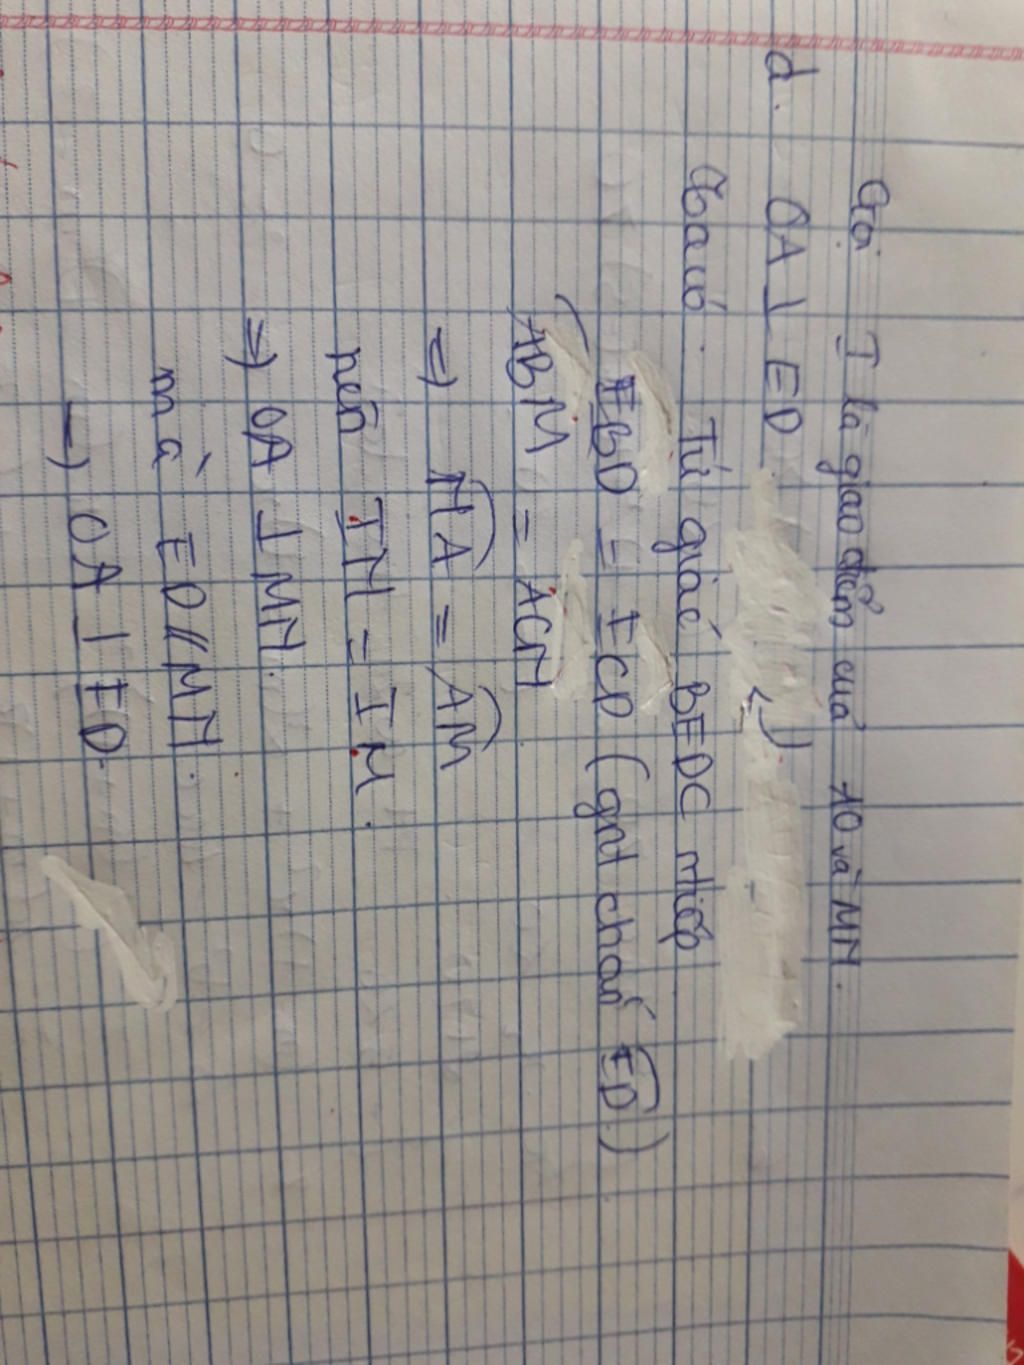 Gọi I là giao điểm của AO và MN.
d. OA ⊥ ED
Ta có: Tứ giác BEDC ntiếp
EBD = ECD (gnt chắn ED)
ABM = ACN
=> NA = AM
nên IN = IM.
=> OA ⊥ MN.
mà ED // MN.
-> OA ⊥ ED.